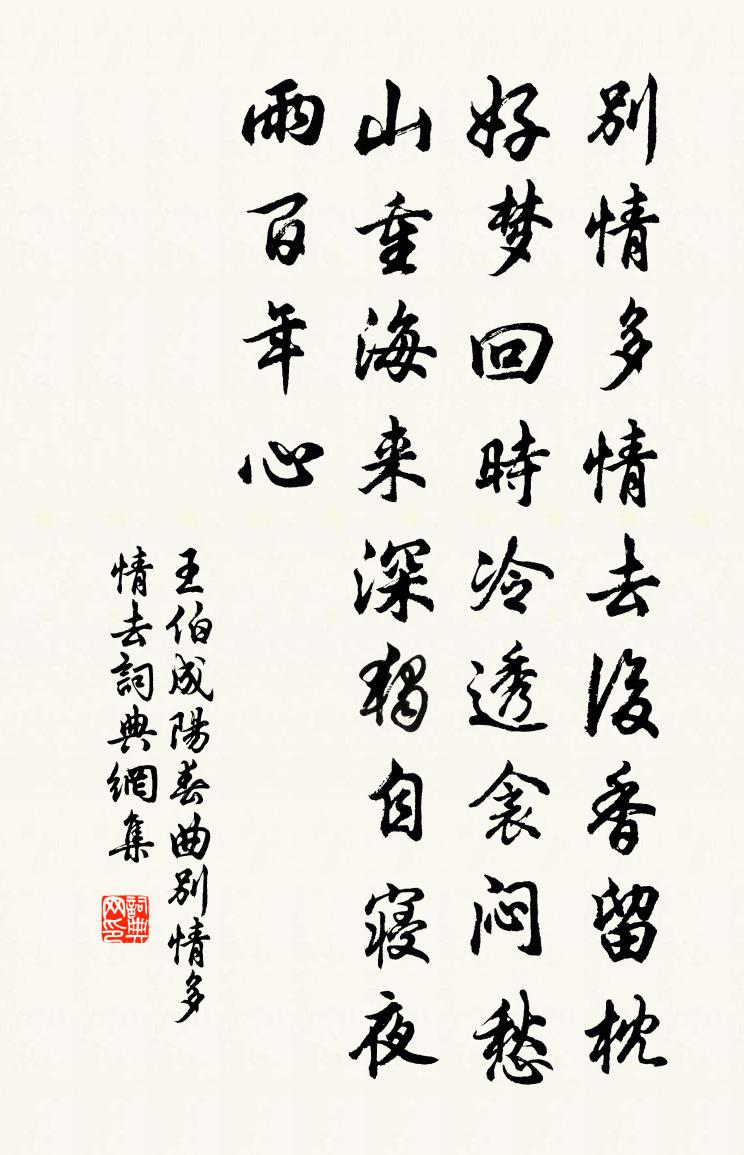 別情多情去後香留枕
好梦回時冷透衾闷愁
山重海来深獨自寝夜
雨百年心
王伯成陽春曲別情多
情去詞典網集
詞典网印